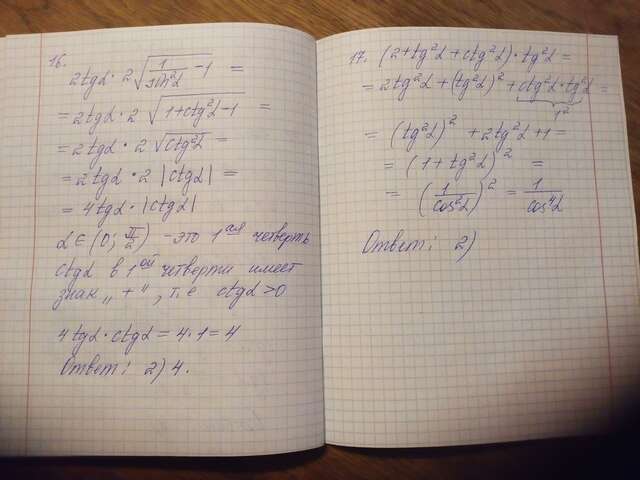 16.
2tgα · 2√(1/sin²α - 1) =
= 2tgα · 2√(1+ctg²α-1) =
= 2tgα · 2√(ctg²α) =
= 2tgα · 2|ctgα| =
= 4tgα · |ctgα|
α ∈ (0; π/2) - это 1ая четверть
ctgα в 1ой четверти имеет
знак „+", т.е ctgα>0
4tgα · ctgα = 4·1 = 4
Ответ: 2) 4.
17. (2+tg²α+ctg²α)·tg²α =
= 2tg²α + (tg²α)² + ctg²α·tg²α =
1²
= (tg²α)² + 2tg²α + 1 =
= (1+tg²α)² =
= (1/cos²α)² = 1/cos⁴α
Ответ: 2)